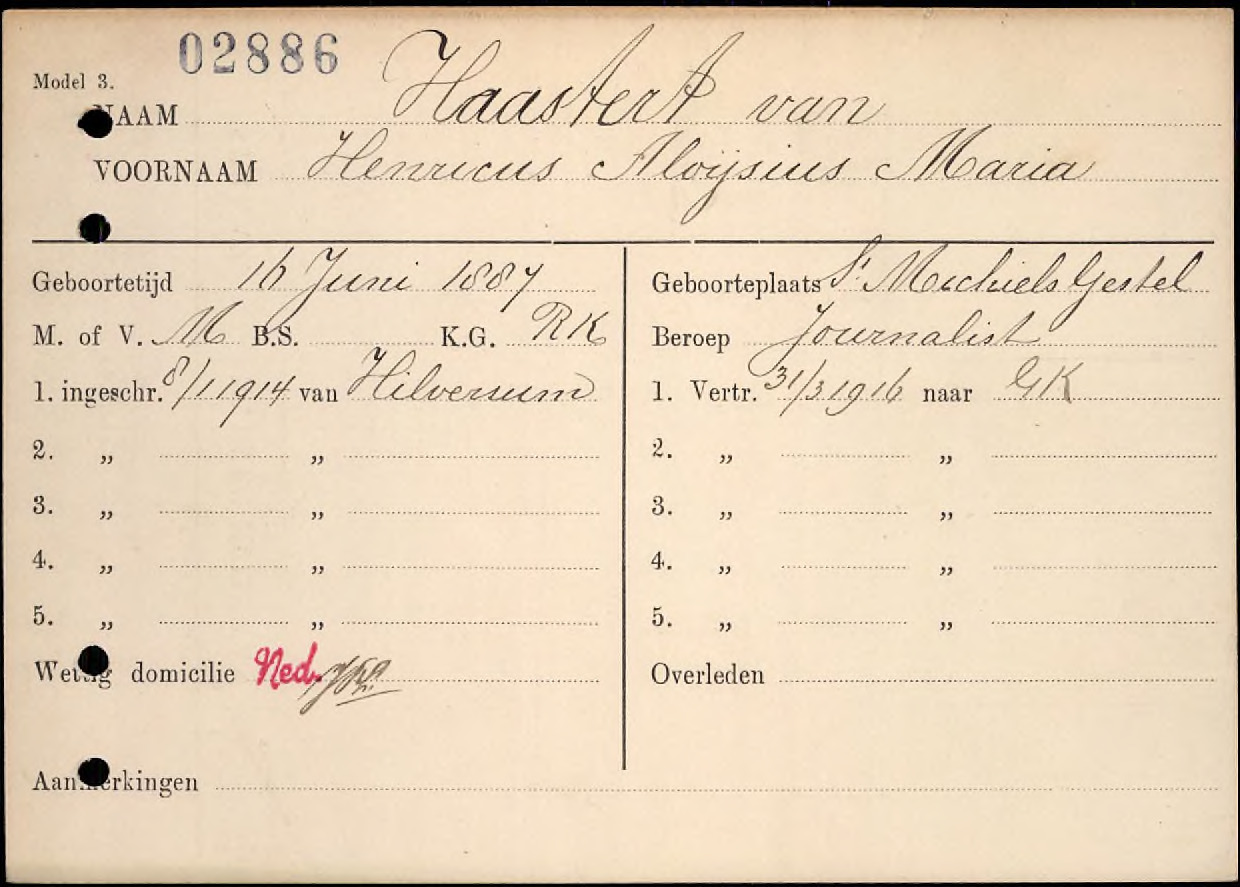 02886
Model 3.
NAAM Haastert van
VOORNAAM Henricus Aloijsius Maria
Geboortetijd 16 Juni 1887
M. of V. M B.S. K.G. RK
1. ingeschr. 8/1 1914 van Hilversum
2. „ „
3. „ „
4. „ „
5. „ „
Wettig domicilie Ned.
Aanmerkingen
Geboorteplaats St Michiels Gestel
Beroep Journalist
1. Vertr. 31/3 1916 naar GK
2. „ „
3. „ „
4. „ „
5. „ „
Overleden